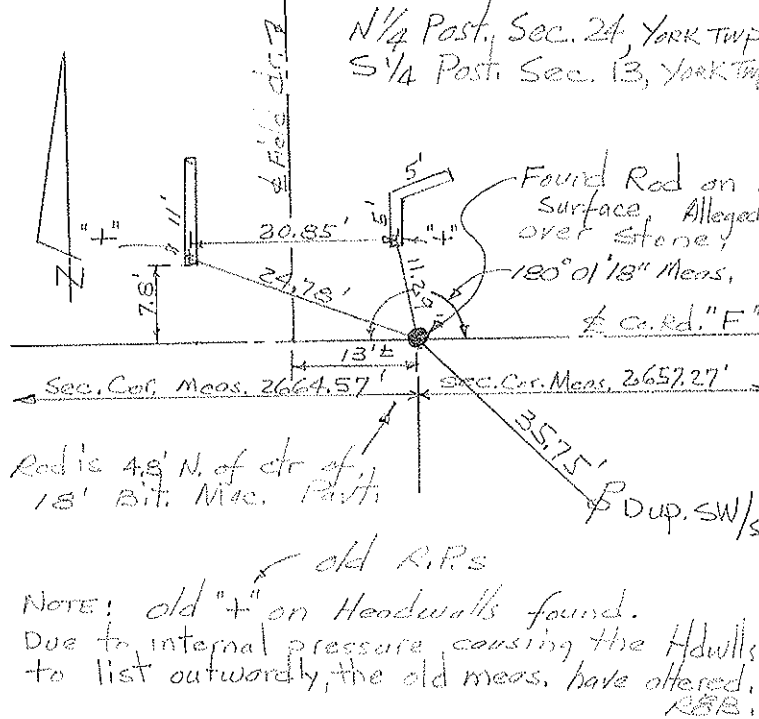 N 1/4 Post, Sec. 24, YORK TWP
S 1/4 Post. Sec. 13, YORK TW
℄ Field dr.
5'
11'
5'
"+"
"+"
20.85'
Found Rod on
Surface, Alleged
over stone,
N
7.8'
24.78'
11.29'
180°01'18" Meas.
℄ Co. Rd. "F"
13'±
Sec. Cor. Meas. 2664.57'
Sec. Cor. Meas. 2657.27'
35.75'
Rod is 4.8' N. of ctr of
18' Bit. Mac. Pavt.
Dup. SW/s
old R.P.s
NOTE: old "+" on Headwalls found.
Due to internal pressure causing the Hdwlls
to list outwardly, the old meas. have altered.